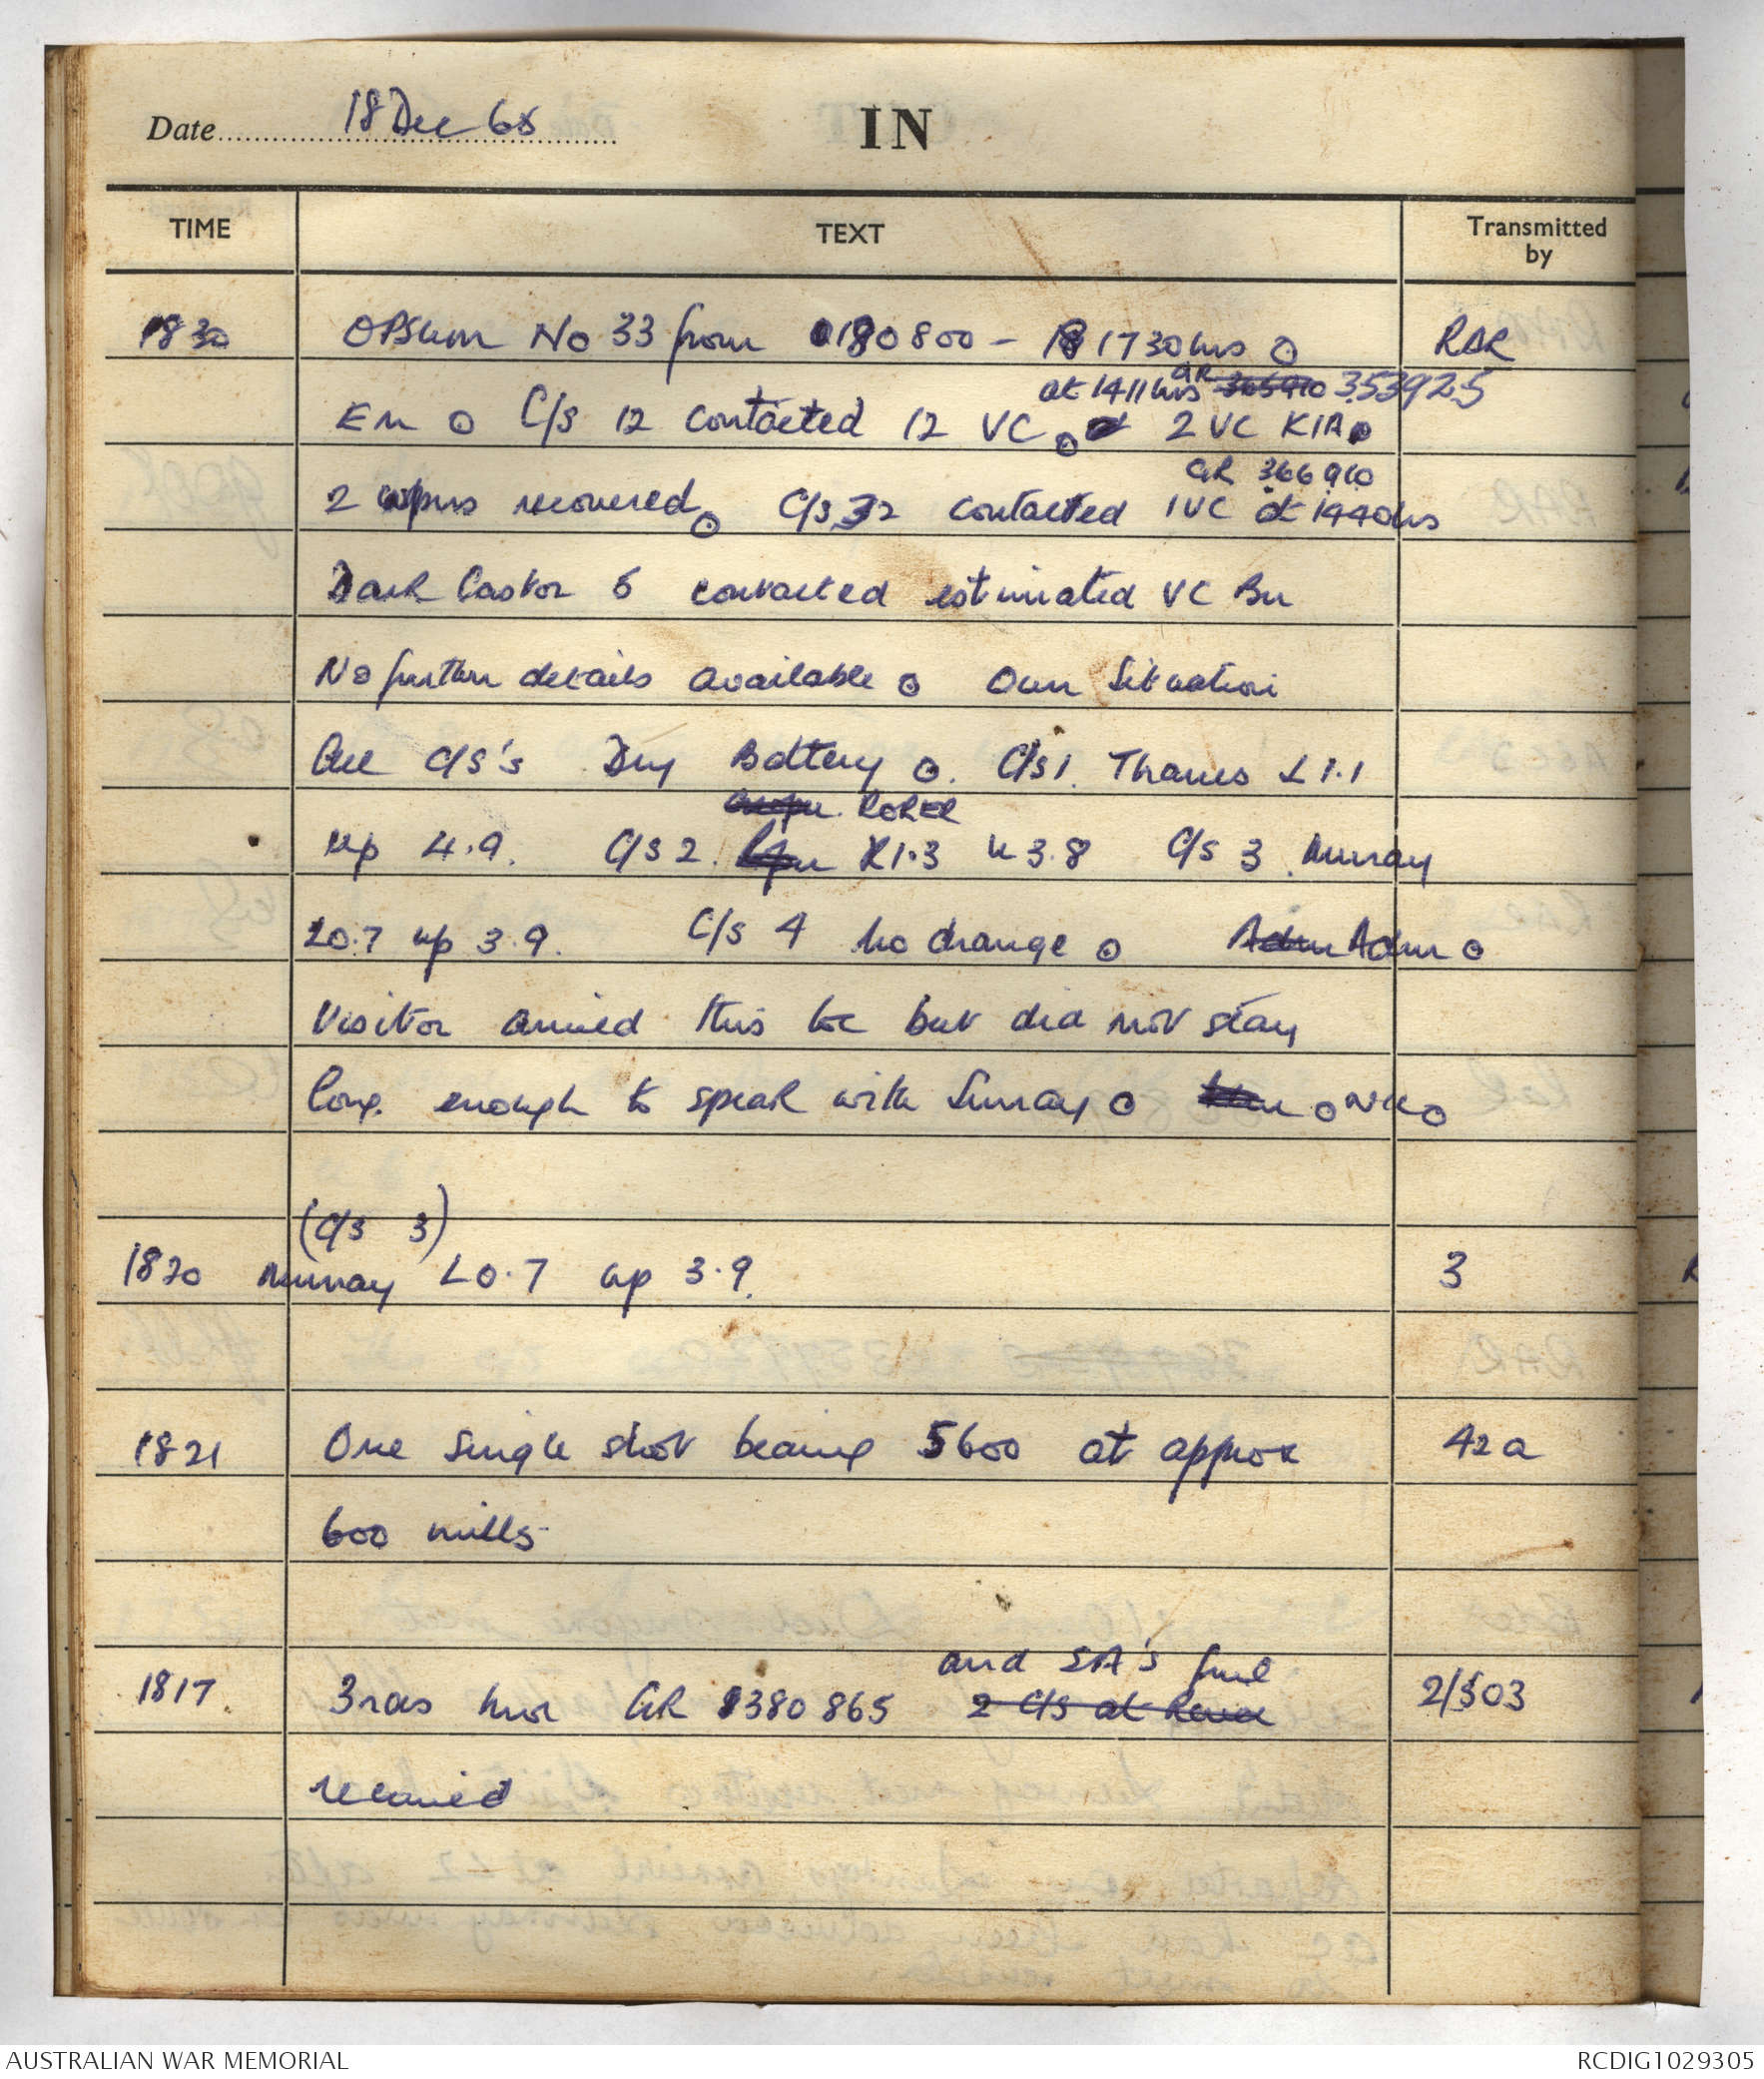 Date 18 Dec 65
IN
TIME TEXT Transmitted by
1830 OPSum No 33 from 180800 - 181730hrs ⊙ RAR
at 1411hrs GR 365910 353925
En ⊙ C/S 12 contacted 12 VC ⊙ 2 VC KIA ⊙
GR 366910
2 wpns recovered ⊙ C/S 32 contacted 1 VC at 1440hrs
Dark Castor 6 contacted estimated VC Bn
No further details available ⊙ Own Situation
All C/S's Dry Battery ⊙. C/S 1. Thames L 1.1
ROPER
up 4.9. C/S 2. R1.3 u 3.8 C/S 3. Murray
L0.7 up 3.9. C/S 4 No change ⊙ Adm Adm ⊙
Visitor arrived this loc but did not stay
long enough to speak with Sunray ⊙ ⊙ ⊙
(C/S 3)
1820 Murray L0.7 up 3.9. 3
1821 One single shot bearing 5600 at approx 42a
600 mills
and SA's fire
1817 3 rds mor GR 380865 2 C/S at 2/503
received
AUSTRALIAN WAR MEMORIAL
RCDIG1029305